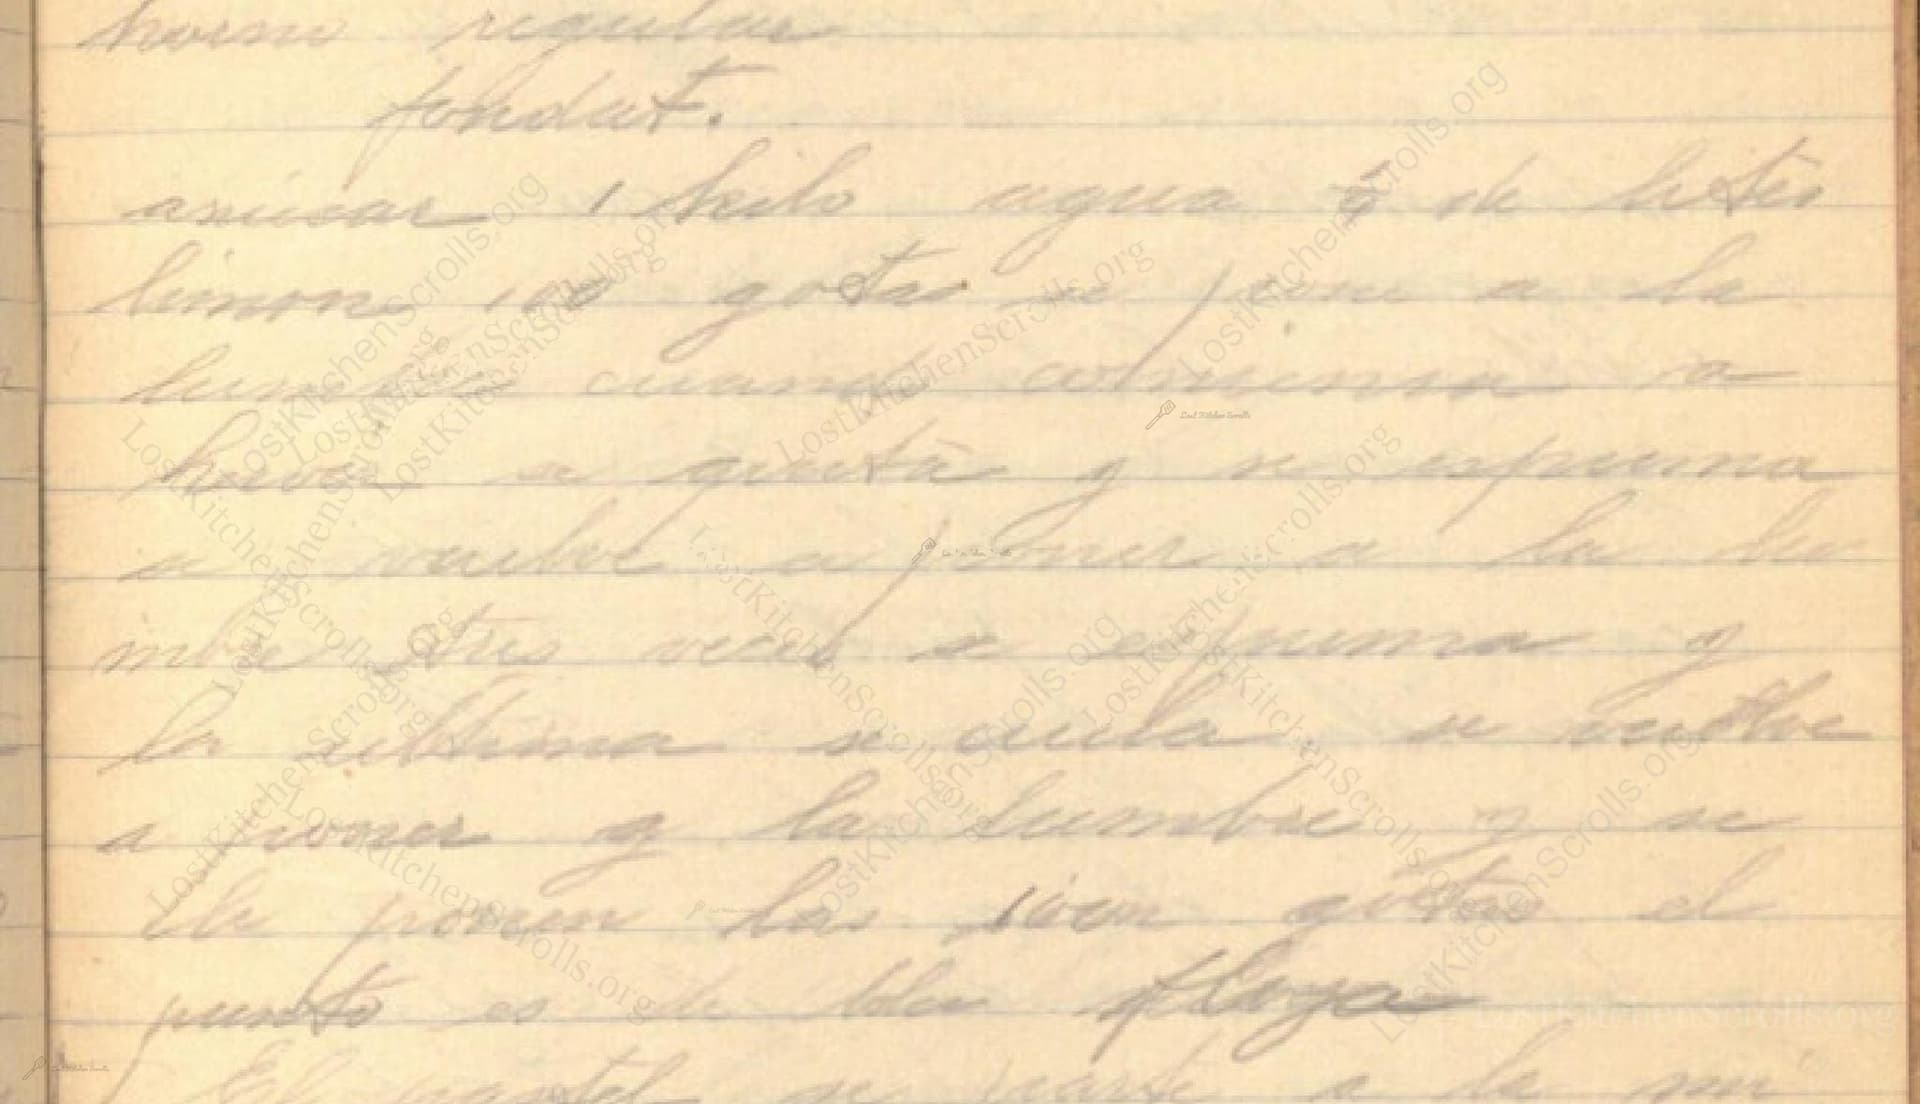 horno regular
fondat.
asucar 1 kilo agua de litro
limon 100 gotas se pone a la
lumbre cuando comiensa a
hervir se quita y se espuma
se vuelve a poner a la lu
mbre tres veces se espuma y
la ultima se cuela se vuelve
a poner a la lumbre y se
le ponen las cien gotas el
punto es de bola floja
El pastel se parte a la mi